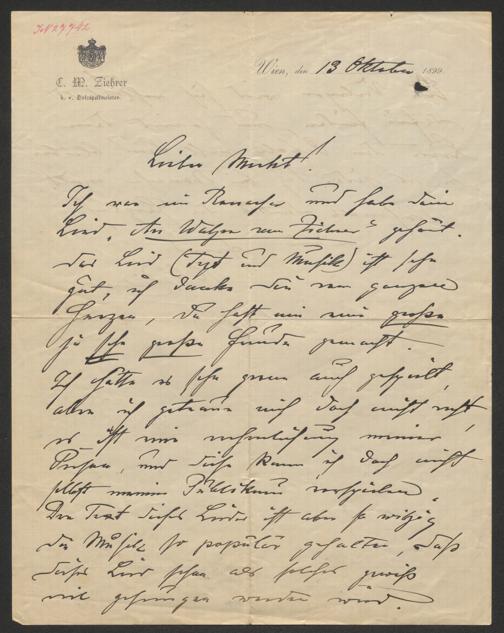 C. M. Ziehrer
k. u. k. Hofballmusikdirector
Wien, den 13 Oktober 1899.
Lieber Merkt!
Ich war im Ronacher und habe dein
Lied „Der Walzer vom Ziehrer“ gehört.
Das Lied (Text und Musik) ist sehr
gut, ich danke dir vom ganzen
Herzen, Du hast mir eine große
ja sehr große Freude gemacht.
Ich hätte es sehr gerne auch gespielt,
aber ich getraue mich doch nicht recht,
es ist eine meiner
Person, und diese kann ich doch nicht
selbst meinem Publikum vorspielen.
Der Text dieses Liedes ist aber so witzig
die Musik so populär gehalten, daß
dieses Lied schon als solches gewiß
viel gesungen werden wird.